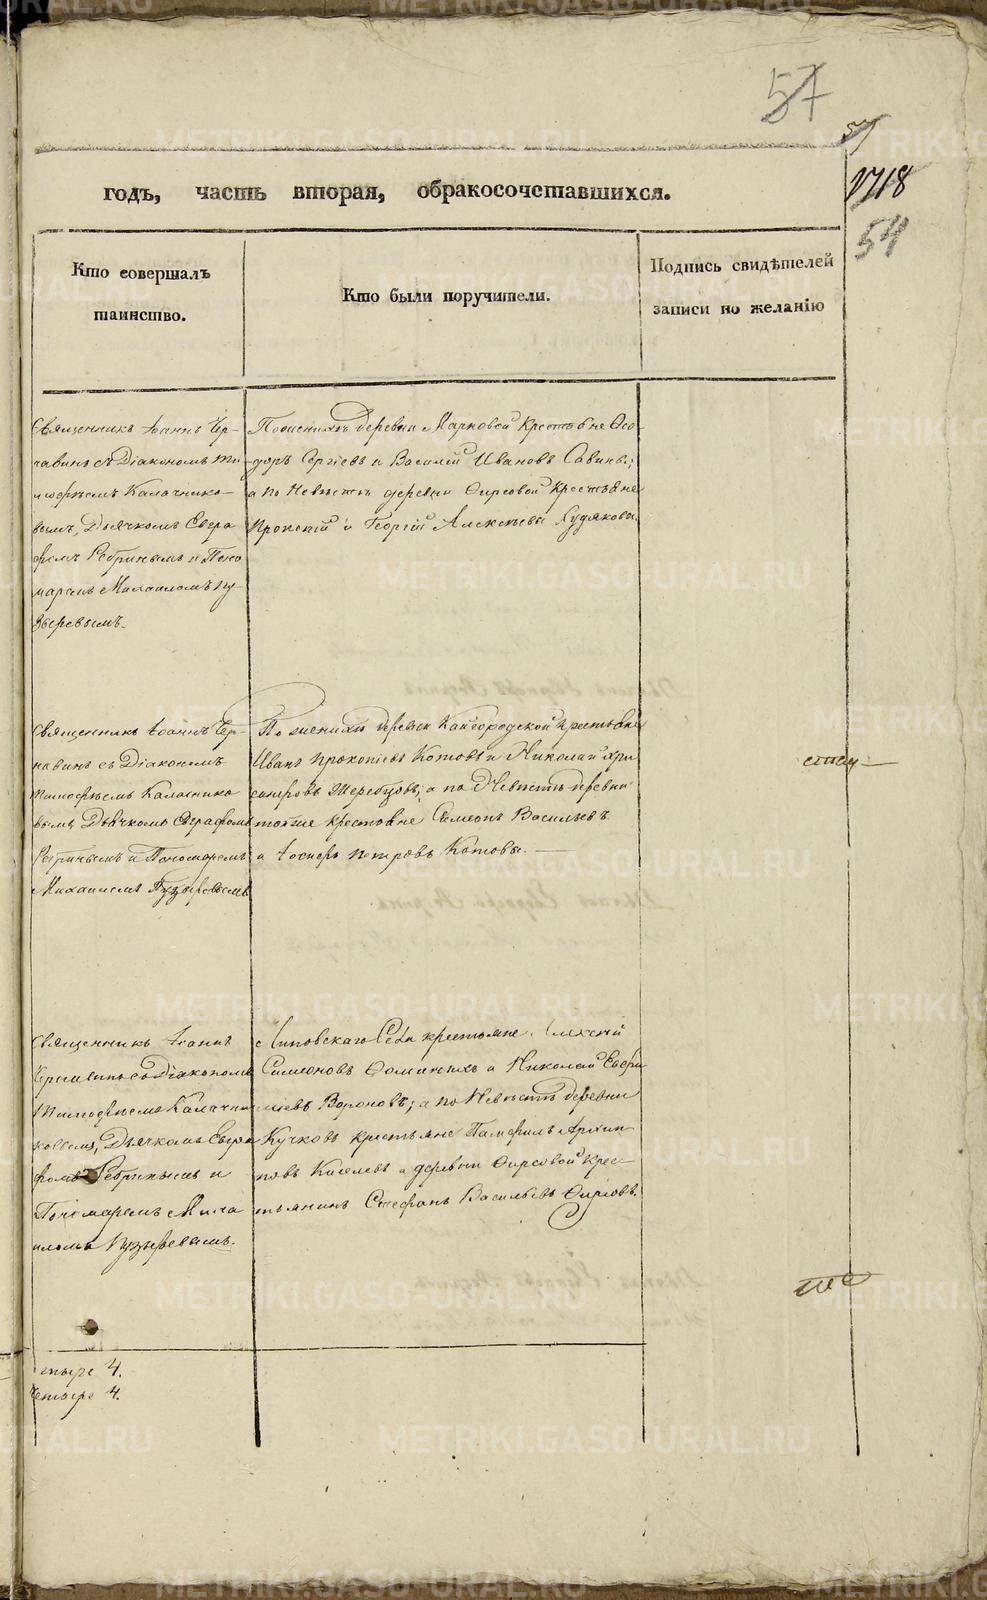 57
57
1718
54
годъ, часть вторая, обракосочетавшихся.
Кто совершалъ
таинство.
Кто были поручители.
Подпись свидѣтелей
записи по желанію
Священникъ Іоаннъ Чер-
навинъ съ Діакономъ Ти
моѳеемъ Калачнико-
вымъ, Дьячкомъ Евгра
фомъ Ребринымъ и Поно
маремъ Михаиломъ Пу
зыревымъ.
По женихѣ деревни Марковой крестьяне Ѳео-
доръ Сергѣевъ и Василій Ивановъ Савины;
а по Невѣстѣ деревни Ѳирсовой Крестьяне
и Георгій Алексѣевы Худяковы.
Священникъ Іоаннъ Чер-
навинъ съ Діакономъ
Тимоѳеемъ Калачнико
вымъ Дьячкомъ Евграфомъ
Ребринымъ и Пономаремъ
Михаиломъ Пузыревымъ
По женихѣ деревни Кайгородской крестьяне
Иванъ Прокопьевъ Котовъ и Николай
Жеребцовъ; а по Невѣстѣ деревни
тойже крестьяне Симеонъ Васильевъ
и Іосифъ Петровъ Котовы.
Священникъ Іоаннъ
Чернавинъ съ Діакономъ
Тимоѳеемъ Калачни
ковымъ, Дьячкомъ Евгра
фомъ Ребринымъ и
Пономаремъ Миха
иломъ Пузыревымъ.
Липовскаго Села крестьяне Алексій
Симеоновъ Ѳоминыхъ и Николай
Вороновъ; а по Невѣстѣ деревни
Кучковъ крестьяне Памфилъ Архип
повъ Киселевъ и деревни Ѳирсовой Крес-
тьянинъ Стефанъ Васильевъ Ѳирсовъ.
4.
Четыре 4.
METRIKI.GASO-URAL.RU